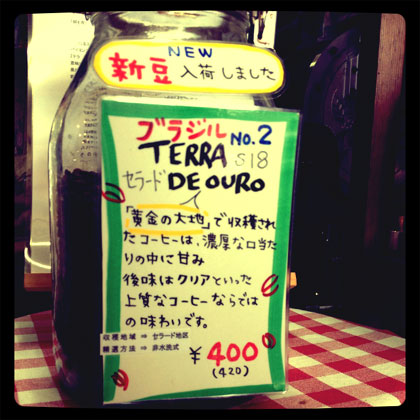 NEW
新豆 入荷しました
ブラジル No.2
TERRA S18
セラード DE OURO
「黄金の大地」で収穫され
たコーヒーは、濃厚な口当た
りの中に甘み
後味はクリアといった
上質なコーヒーならでは
の味わいです。
収穫地域 ⇒ セラード地区
精選方法 ⇒ 非水洗式
¥400
(420)